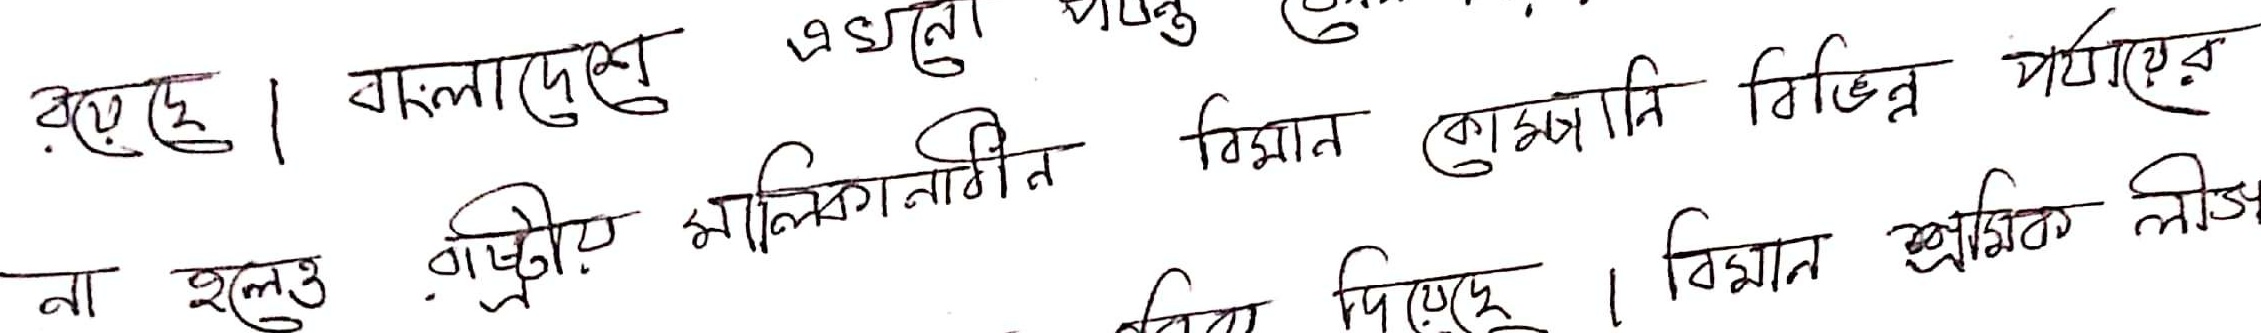 রয়েছে। বাংলাদেশে এখনো পর্যন্ত
না হলেও রাষ্ট্রীয় মালিকানাধীন বিমান কোম্পানি বিভিন্ন পর্যায়ের
দিয়েছে। বিমান শ্রমিক লীগ